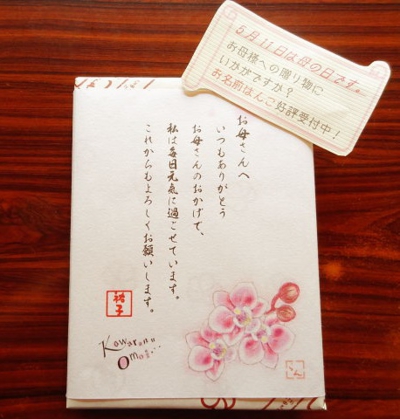 5月11日は母の日です。
お母様への贈り物に
いかがですか？
お名前はんこ好評受付中！
お母さんへ
いつもありがとう
お母さんのおかげで、
私は毎日元気に過ごせています。
これからもよろしくお願いします。
裕子
Kawaranu
Omoi...